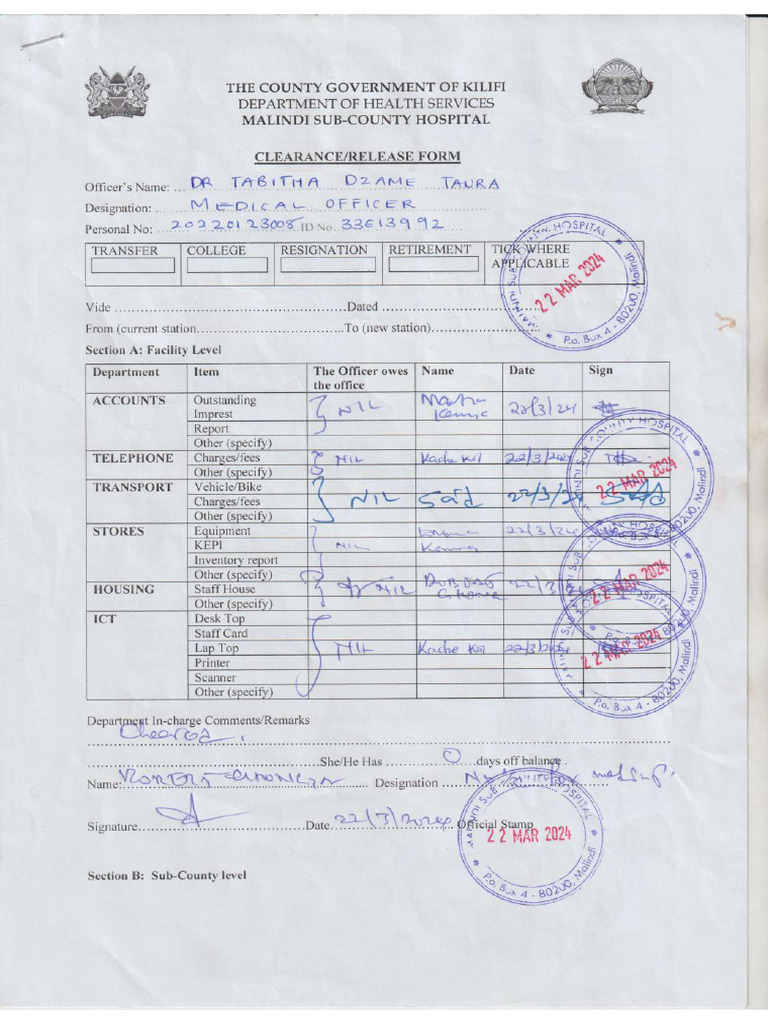 THE COUNTY GOVERNMENT OF KILIFI
DEPARTMENT OF HEALTH SERVICES
MALINDI SUB-COUNTY HOSPITAL
CLEARANCE/RELEASE FORM
Officer's Name: ... DR TABITHA DZAME TAURA
Designation: MEDICAL OFFICER
Personal No: 20220123008 ID No. 33613992
TRANSFER COLLEGE RESIGNATION RETIREMENT TICK WHERE APPLICABLE
MALINDI SUB-COUNTY HOSPITAL
22 MAR 2024
P.o. Box 4 - 80200, Malindi
Vide ............ Dated ............
From (current station............ To (new station)............
Section A: Facility Level
Department Item The Officer owes the office Name Date Sign
ACCOUNTS Outstanding Imprest NIL 22/3/24
Report
Other (specify)
TELEPHONE Charges/fees NIL Kache 22/3/2024
Other (specify)
TRANSPORT Vehicle/Bike
Charges/fees NIL Said 22/3/24
Other (specify)
STORES Equipment 22/3/24
KEPI NIL
Inventory report
Other (specify)
HOUSING Staff House NIL 22/3/24
Other (specify)
ICT Desk Top
Staff Card
Lap Top NIL Kache 22/3/2024
Printer
Scanner
Other (specify)
22 MAR 2024
22 MAR 2024
22 MAR 2024
P.o. Box 4 - 80200, Malindi
Department In-charge Comments/Remarks
Cleared.
She/He Has ............ 0 ....days off balance .
Name: ROBERT ............ Designation ............
Signature............ Date 22/3/2024 Official Stamp
MALINDI SUB-COUNTY HOSPITAL
22 MAR 2024
P.o. Box 4 - 80200, Malindi
Section B: Sub-County level